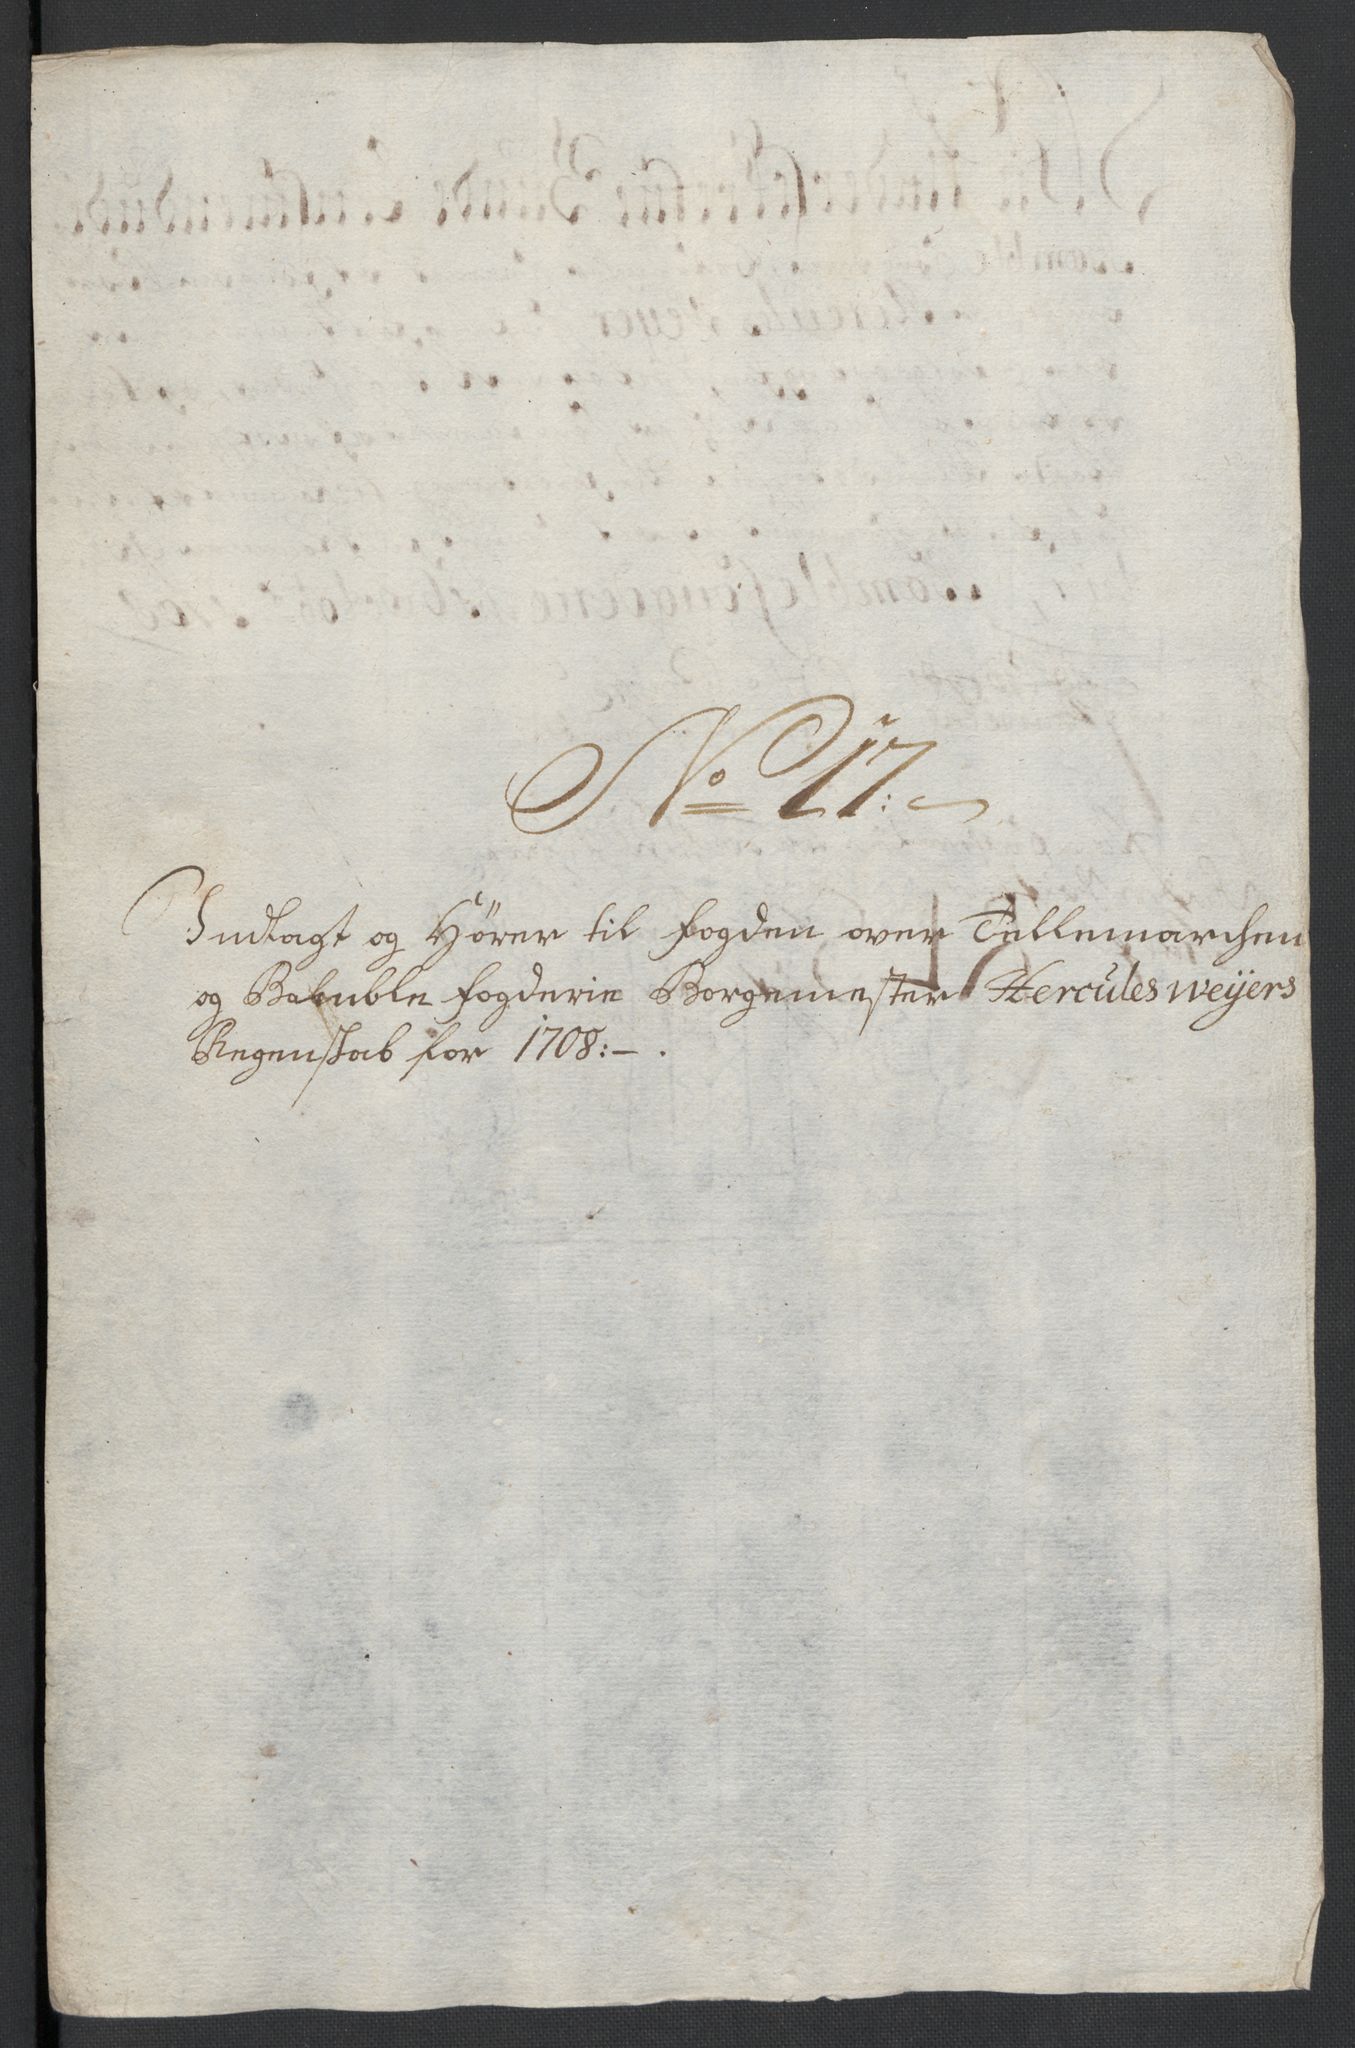 No 17:
Indlagt og Hører til fogden over Tellemarchen
og Bamble fogderie Borgemester Hercules weÿers
Regenskab for 1708:-.